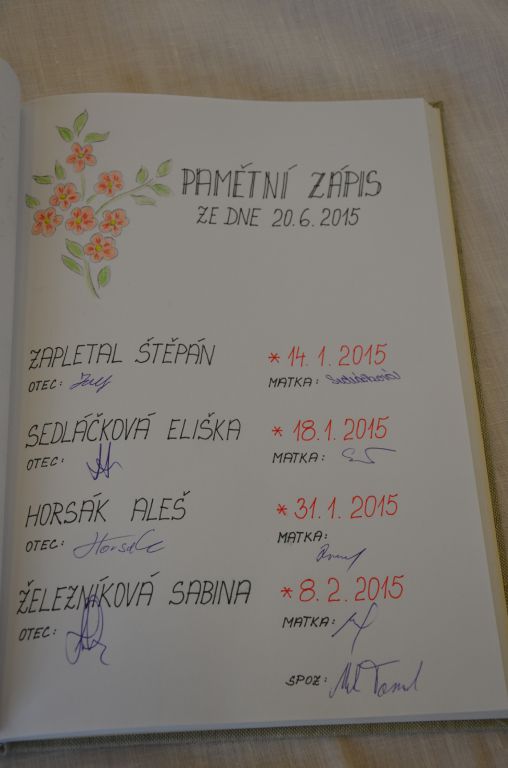 PAMĚTNÍ ZÁPIS
ZE DNE 20.6.2015
ZAPLETAL ŠTĚPÁN * 14.1.2015
OTEC: MATKA:
SEDLÁČKOVÁ ELIŠKA * 18.1.2015
OTEC: MATKA:
HORSÁK ALEŠ * 31.1.2015
OTEC: Horsák MATKA:
ŽELEZNÍKOVÁ SABINA * 8.2.2015
OTEC: MATKA:
SPOZ: